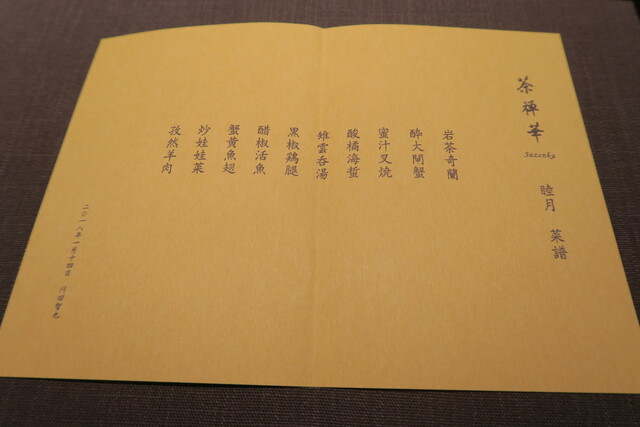 茶禅華
Sazenka
睦月 菜譜
岩茶奇蘭
酔大閘蟹
蜜汁叉焼
酸橘海蜇
雉雲呑湯
黒椒鶏腿
醋椒活魚
蟹黄魚翅
炒娃娃菜
孜然羊肉
二〇一八年一月十四日 川田智也